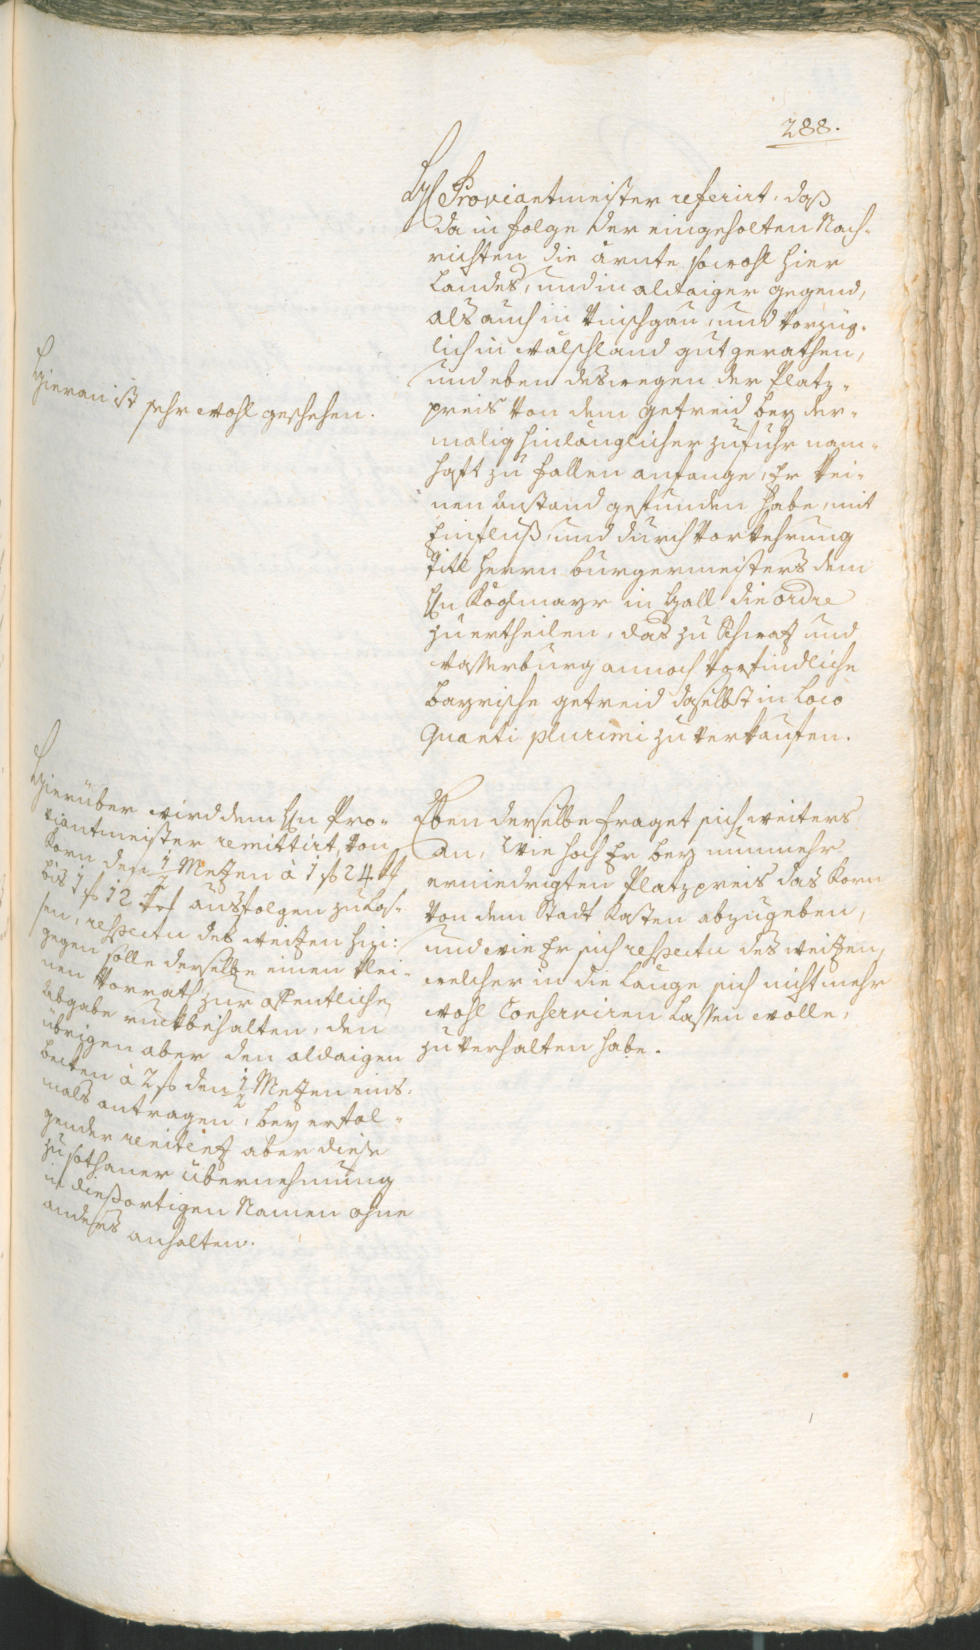 288.
H: Proviantmeister referirt, daß
da in folge der eingeholten Nach-
richten die ärnte sowohl hier
Landes, und in aldaiger gegend,
als auch in Vinschgau, und vorzüg-
lich in wälschland gut gerathen,
und eben deswegen der Platz-
preis von dem getreid bey der-
malig hinlänglicher zufuhr nam-
haft zu fallen anfange, Er kei-
nen anstand gefunden habe, mit
Einfluß, und durch Vorkehrung
Titl Herrn burgermeisters dem
Hn Köglmayr in Hall die ordre
zu ertheilen, das zu Schwaz und
wasserburg annoch vorfindliche
bayrische getreid daselbst in Loco
quanti plurimi zu verkaufen.
Hieran ist sehr wohl geschehen.
Eben derselbe fraget sich weiters
an, wie hoch Er bey nunmehr
erniedrigten Platzpreis das Korn
von dem Stadt Kasten abzugeben,
und wie Er sich respectu des weitzen,
welcher in die Länge sich nicht mehr
wohl Conserviren lassen wolle,
zu verhalten habe.
Hierüber wird dem Hn Pro-
viantmeister remittirt, von
Korn den 1/2 Metzen à 1 f 24 kr
bis 1 f 12 kr ausfolgen zu las-
sen, respectu des weitzen hin-
gegen solle derselbe einen klei-
nen Vorrath zur offentlichen
abgabe rückbehalten, den
übrigen aber den aldaigen
becken à 2 f den 1/2 Metzen eins-
mals antragen, bey erfol-
gender renitenz aber diese
zu sothaner übernehmung
in dießortigen Namen ohne
anders anhalten.